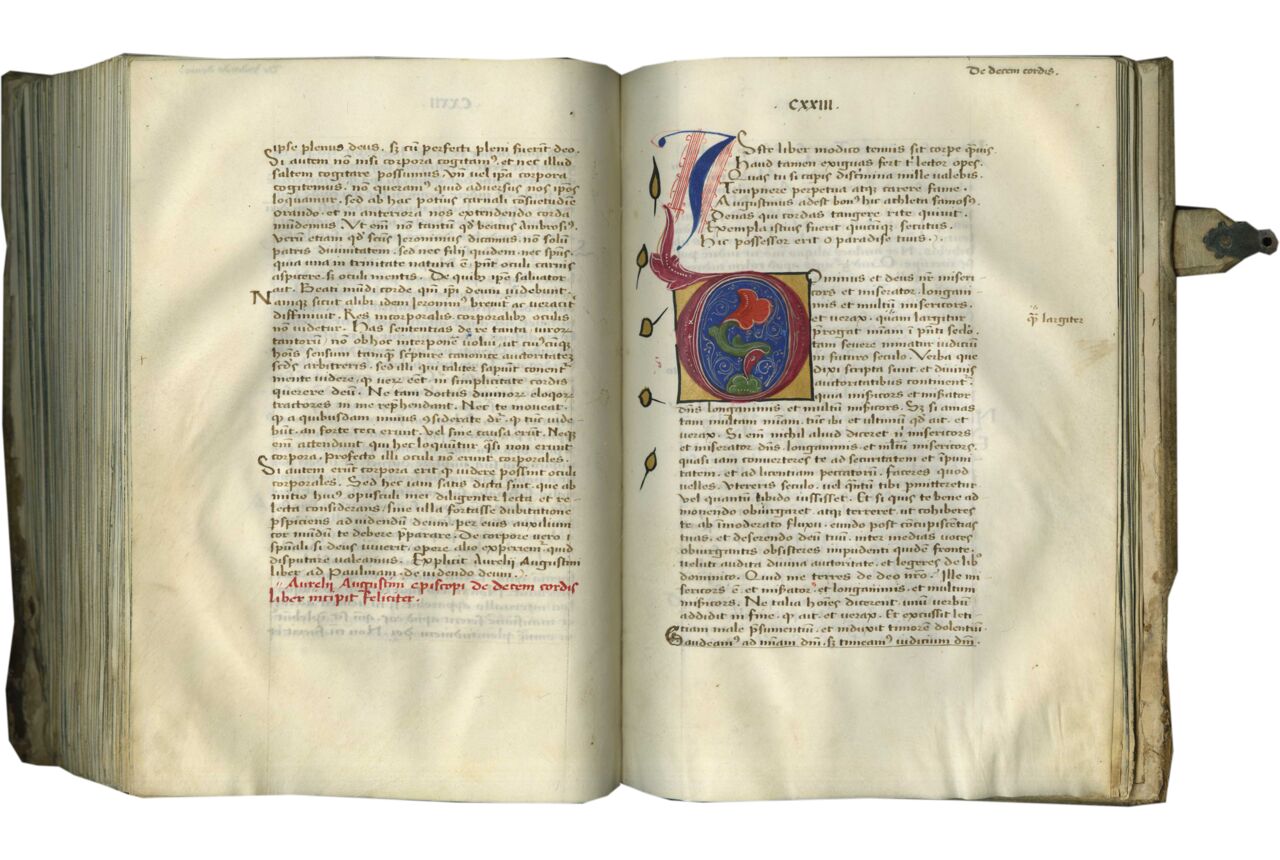 ipse plenus deus. sꝫ cū perfecti pleni fuerint deo.
Si autem nō nisi corpora cogitamꝰ, et nec illud
saltem cogitare possumus. Vn̄ vel ip̄a corpora
cogitemus. nō queramꝰ quid adversus nos ip̄os
loquamur, sed ab hac potius carnali cōsuetudīe
orando. et in anteriora nos extendendo corda
mūdemus. Vt em̄ nō tantū qd̄ beatus ambrosiꝰ.
verū etiam qd̄ sc̄us Jeronimus dicamus. nō solū
patris divinitatem, sed nec filij quidem, nec sp̄us
que una in trinitate natura ē pn̄t oculi carnis
aspicere. si oculi mentis. De quibꝫ ip̄e salvator
ait. Beati mūdi corde qm̄ ip̄i deum videbunt.
Namque sicut alibi idem Jeronimꝰ breuit̄ ac veracit̄
diffinivit. Res incorporalis corporalibꝫ oculis
nō videtur. Has sententias de re tanta
tantorū nō ob hoc interpone uolui, ut
hoīs sensum tamqꝫ sc̄pture canonice autoritatē
arbitreris. sed illi qui taliter sapiūt conent̄
mente videre, ꝙ verū est. in simplicitate cordis
querere deū. Ne tam doctus
tractores in me rep̄hendant. Nec te moveat.
ꝙ a quibusdam minus 9siderate dr̄. ꝙ tūc vide-
būt, an forte ceci erunt. vel sine causa erūt. Neqꝫ
em̄ attendunt qui hec loquūtur, qꝫsi non erunt
corpora, profecto illi oculi nō erunt corporales.
Si autem erūt corpora erit ꝙ videre possint oculi
corporales. Sed hec iam satis dicta sint. que ab
initio huiꝰ opusculi mei diligenter lecta et re-
lecta considerans. sine ulla fortasse dubitatione
p̄spicieris ad videndū deum. per eius auxilium
cor mūdū te debere p̄parare. De corpore vero
sp̄uali si deus iuverit, opere alio experiem̄ quid
disputare valeamus. Explicit Aurelij Augustini
liber ad Paulinam. de videndo deum.
Aurelij Augustini episcopi de decem cordis
liber incipit Feliciter.
De decem cordis.
.CXXIII.
ISste liber modico tenuis sit corpe qꝫuis
Haud tamen exiguas fert t̄ lector opes.
Quas tu si capis discrimina mille valebis.
Temnere perpetua atqꝫ carere fame.
Augustinus adest bonꝰ hic athleta famosꝰ.
Denas qui cordas tangere rite quivit.
Exempla istius fuerit quicūqꝫ secutus.
Hic possessor erit o paradise tuus.
Dominus et deus nr̄ miseri
cors et miserator, longani
mis et multū misericors.
et verax. quam largitur
prorogat miam̄ ī p̄nti sclo.
tam severe minatur iudiciū
in futuro seculo. Verba que
dixi scripta sunt. et divinis
autoritatibus continent̄.
quia misericors et miserator
dn̄s longanimis et multū misericors. Sꝫ si amas
tam multam miam̄. time ibi et ultimū qd̄ ait. et
verax. Si em̄ nichil aliud diceret n̄ misericors
et miserator dn̄s. longanimis et mltū misericors.
quasi iam converteres te ad securitatem et īpuni
tatem. et ad licentiam peccatorū. faceres quod
velles. Vtereris seculo. vel qꝫntū tibi p̄mitteretur
vel quantū libido iussisset. Et si quis te bene ad
monendo obiurgaret. atqꝫ terreret. ut cohiberes
te ab īmoderato fluxu. eundo post cōcupiscētias
tuas. et deserendo deū tuū. inter medias voces
obiurgantis obsisteres impudenti quidē fronte.
veluti audita divina autoritate. et legeres de libꝰ
dominico. Quid me terres de deo nrō. Ille mi
sericors ē. et miserator et longanimis. et multum
misericors. Ne talia hoīes dicerent. unū verbū
addidit in fine. ꝙ ait. et verax. Et excussit leti-
tiam male p̄sumentiū. et induxit timorē dolentiū.
Gaudeamꝰ ad miam̄ dn̄i. sꝫ timeamꝰ iudicium dn̄i.
qꝫ largiter